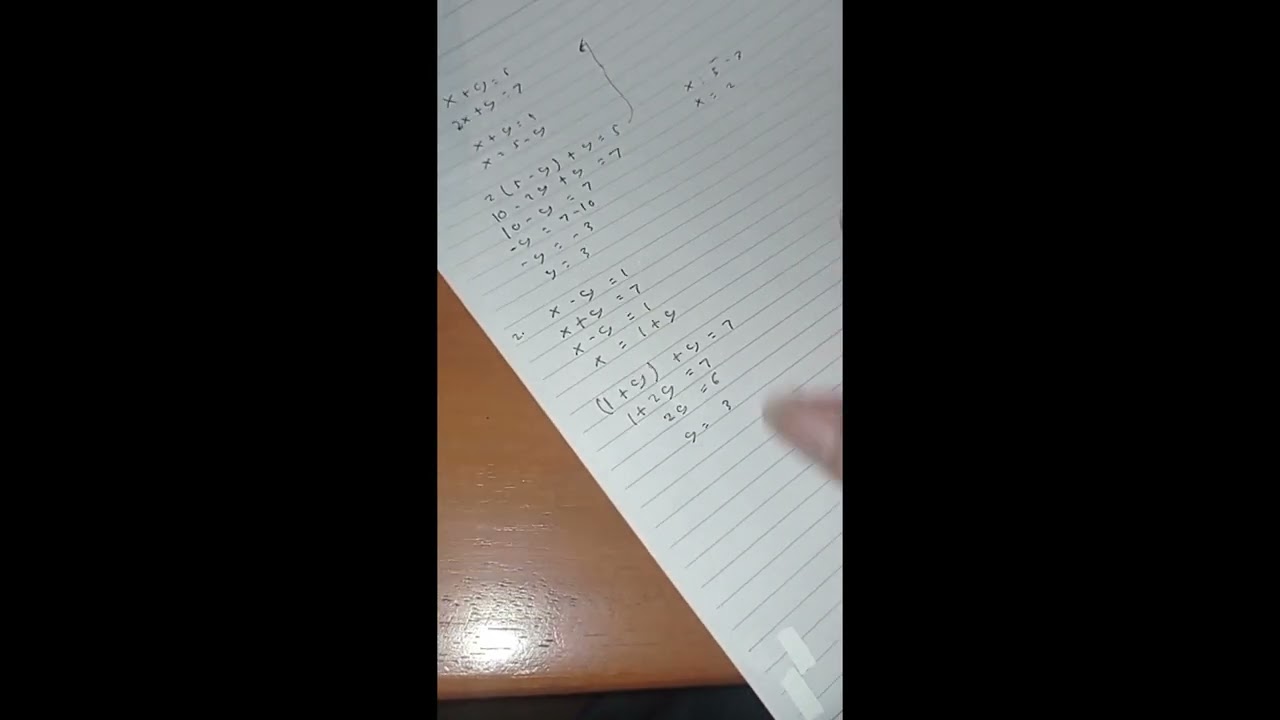 x + y = 5
2x + y = 7
x + y = 5
x = 5 - y
2(5-y) + y = 5
10 - 2y + y = 7
10 - y = 7
-y = 7-10
-y = -3
y = 3
x = 5 - 3
x = 2
2. x - y = 1
x + y = 7
x - y = 1
x = 1 + y
(1 + y) + y = 7
1 + 2y = 7
2y = 6
y = 3